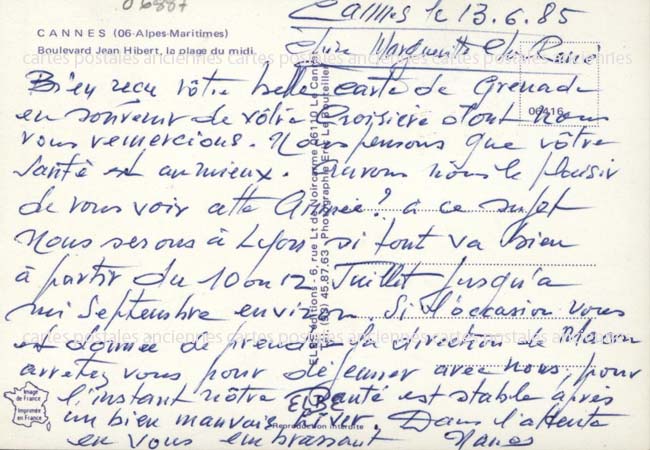 06887
CANNES (06-Alpes-Maritimes)
Boulevard Jean Hibert, la plage du midi.
Cannes le 13.6.85
Chère Marguerite Cher René
Bien reçu vôtre belle carte de Grenade
en souvenir de vôtre Croisière dont nous
vous remercions. Nous pensons que vôtre
santé est au mieux. Aurons nous le plaisir
de vous voir cette Année? a ce sujet
nous serons à Lyon si tout va bien
à partir du 10 ou 12 Juillet jusqu'a
mi Septembre environ. Si l'occasion vous
est donnée de prendre la direction de Macon
arretez vous pour déjeuner avec nous, pour
l'instant nôtre Santé est stable après
un bien mauvais hiver. Dans l'attente
en vous embrassant
06416
ELBE éditions - 6, rue Lt de Noircarme 06110 Le Cannet
Tél. (93) 45.87.63 Photographie Eric Le Bouteiller
Image
de France
Imprimée
en France
ELBE
Reproduction interdite
cartes postales anciennes cartes postales anciennes cartes postales anciennes
cartes postales anciennes cartes postales anciennes cartes postales anciennes